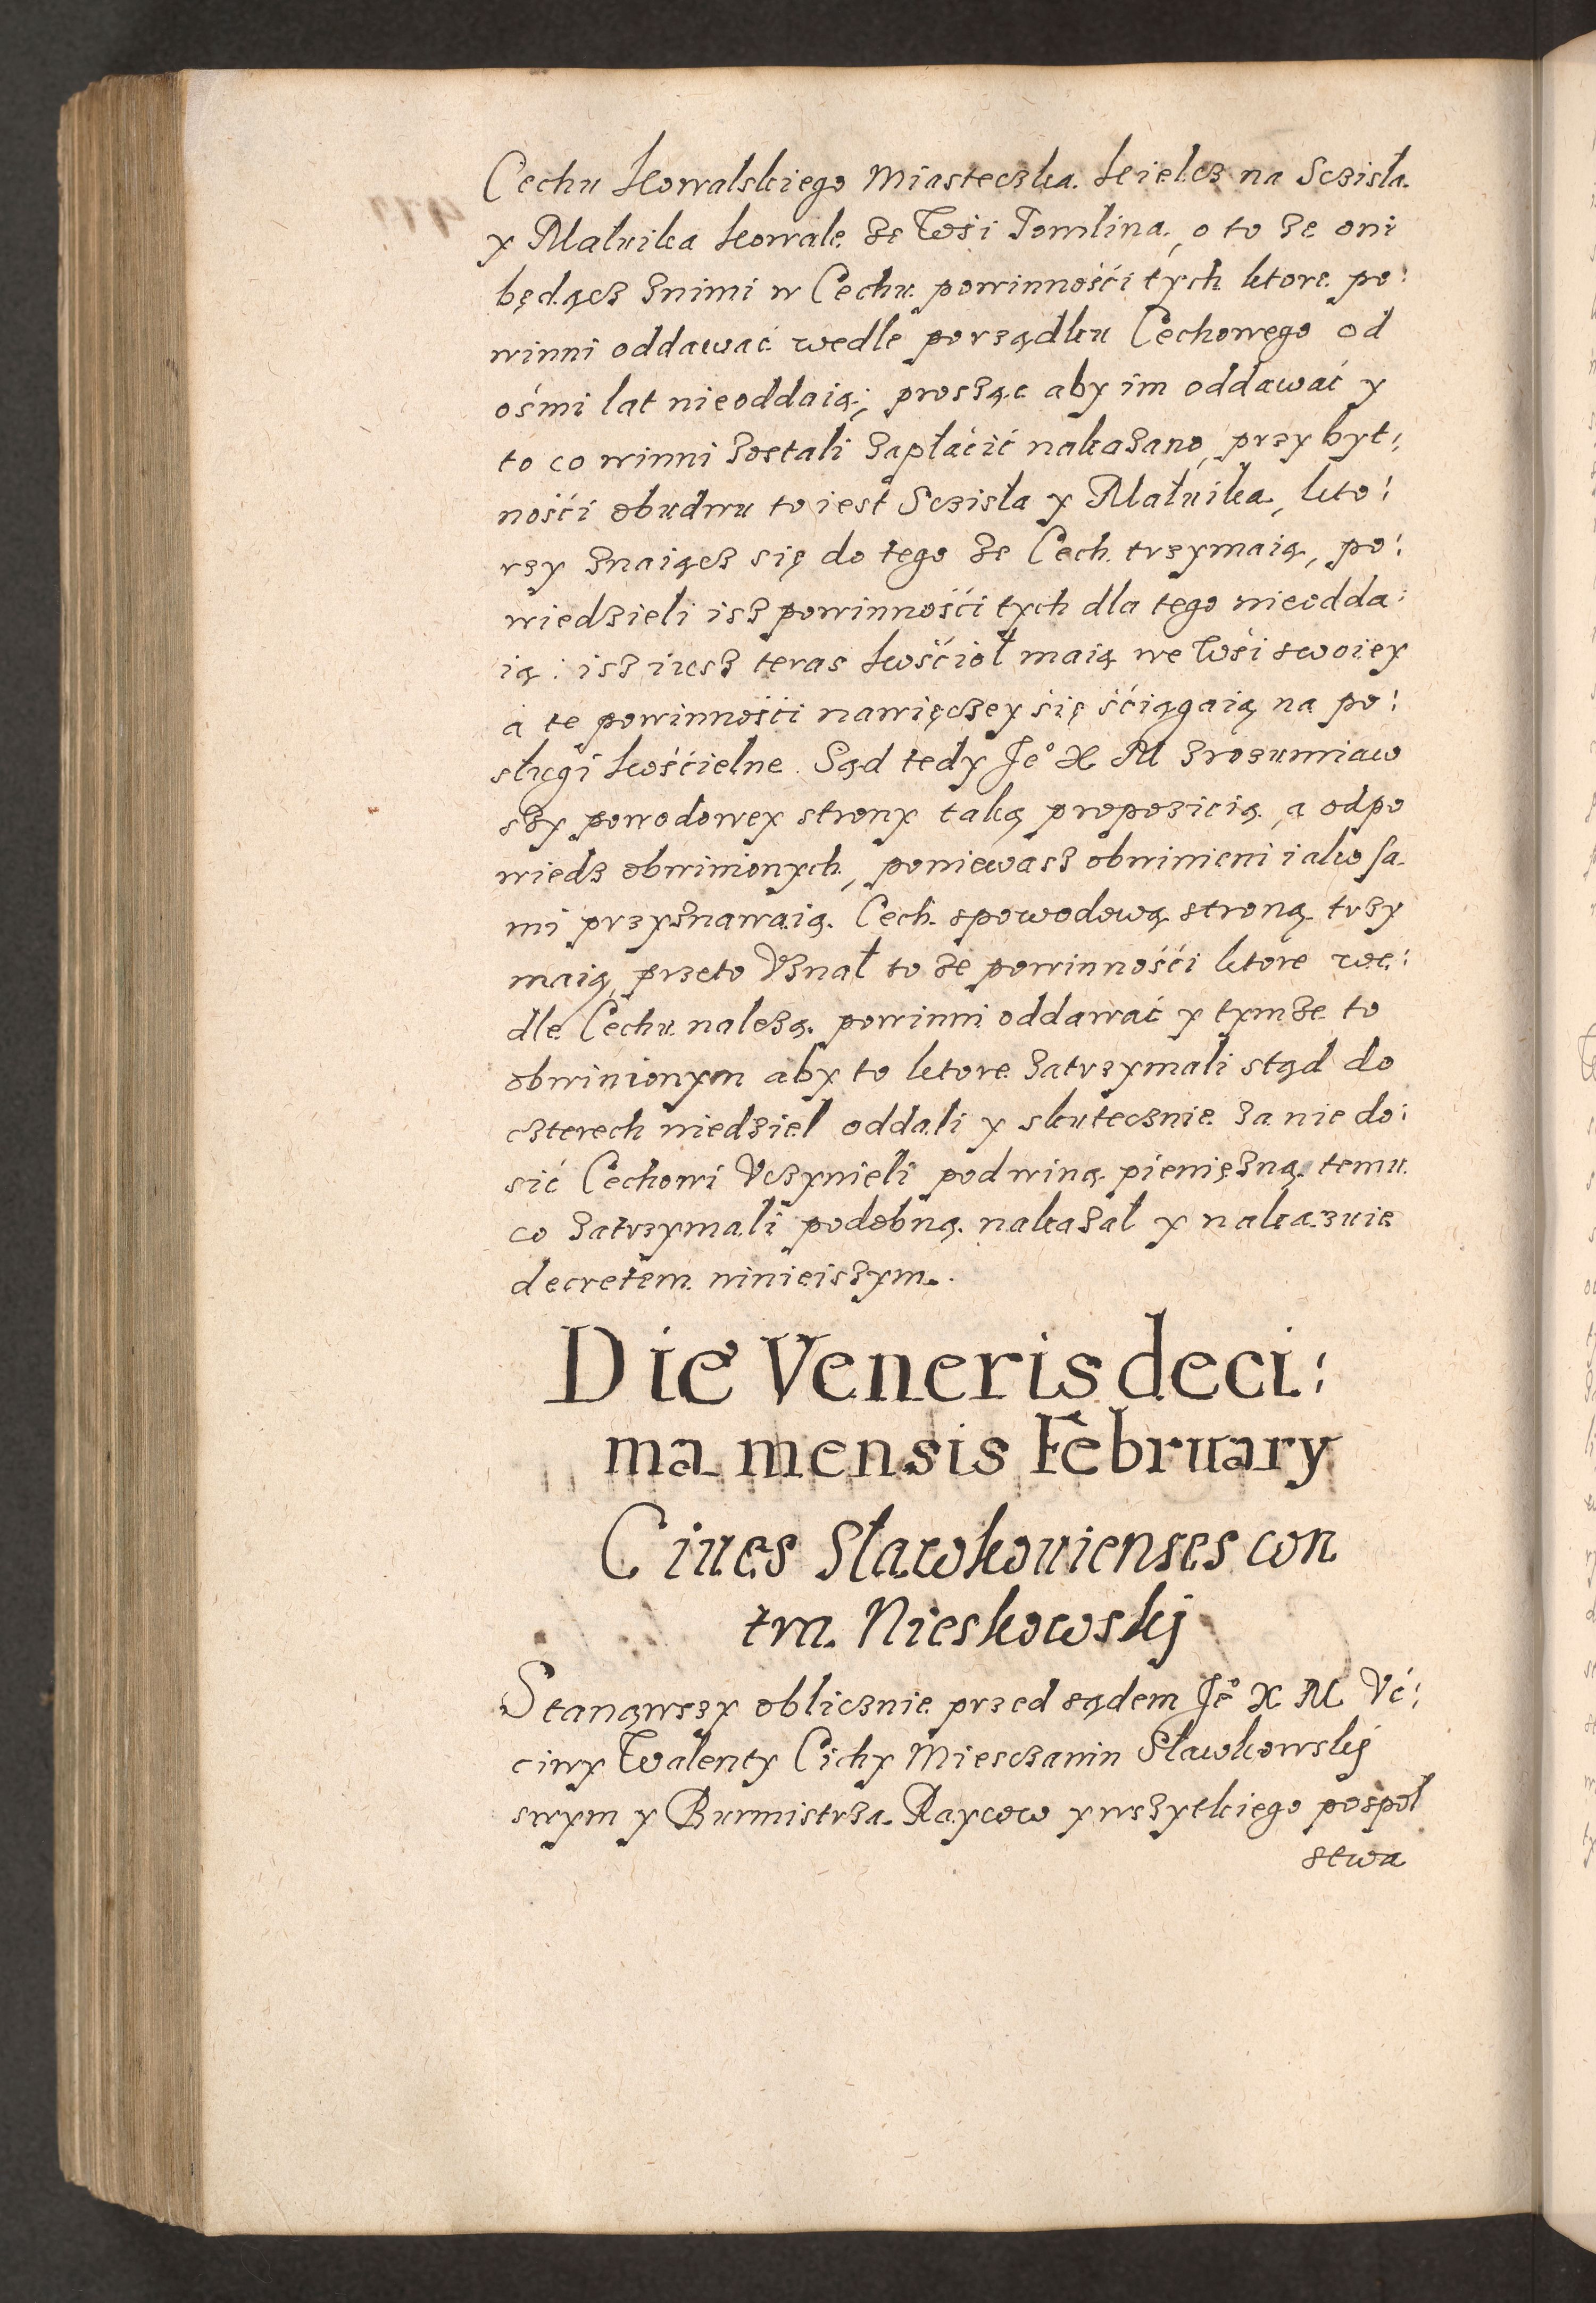 Cechu Kowalskiego Miasteczka Kielcz na Sczisła
y Małuika Kowale ze Wśi Tomlina, o to ze oni
będącz znimi w Cechu powinnośći tych ktore po:
winni oddawać wedle porządku Cechowego od
ośmi lat nieoddaią; prosząc aby im oddawać y
to co winni zostali zapłáćić nakazano, przy byt:
nośći obudwu to iest Sczisła y Małuika, kto:
rzy znaiącz się do tego ze Cech trzymaią, po:
wiedzieli isz powinnośći tych dla tego nieodda:
ią: isz iusz teras kośćioł maią we Wśi swoiey
á te powinnośći nawięczey się śćiągaią na po:
sługi kośćielne. Sąd tedy Jeº X M zrozumiaw
szy powodowey strony taką propozicią, a odpo
wiedz obwinionych, poniewasz obwinieni iako sa
mi przyznawaią Cech spowodową stroną trzy
maią, przeto Vznał to ze powinnośći ktore we:
dle Cechu nalezą powinni oddawać y tymze to
obwinionym aby to ktore zatrzymali stąd do
czterech niedziel oddali y skutecznie za nie do:
sić Cechowi Vczynieli pod winą pieniężną temu
co zatrzymali podobną nakazał y nakazuie
decretem ninieiszym.
Die Veneris deci:
ma mensis February
Ciues Sławkouienses con
tra Nieskowskj
Stanąwszy oblicznie przed sądem Jeº X M Vć:
ciwy Walenty Cichy Miesczanin Sławkowskj
swym y Burmistrza Raycow y wszytkiego pospol
stwa